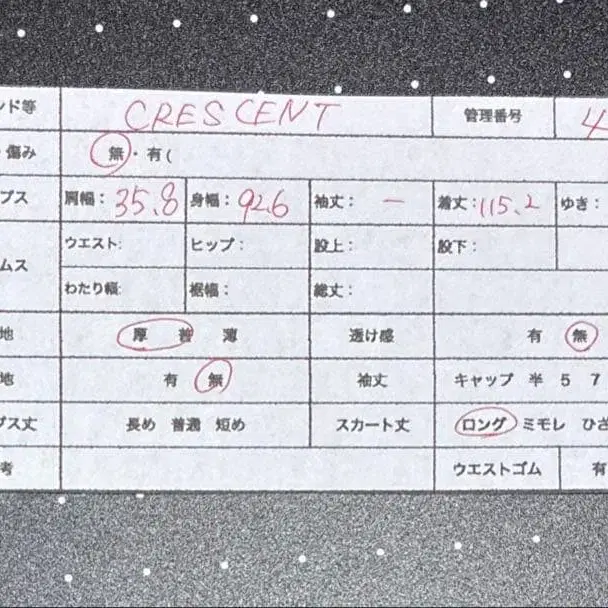 ンド等 CRESCENT 管理番号 4
傷み 無・有(
プス 肩幅: 35.8 身幅: 92.6 袖丈: － 着丈: 115.2 ゆき:
ウエスト: ヒップ: 股上: 股下:
ムス
わたり幅: 裾幅: 総丈:
地 厚 普 薄 透け感 有 無
地 有 無 袖丈 キャップ 半 5 7
プス丈 長め 普通 短め スカート丈 ロング ミモレ ひざ
考 ウエストゴム 有